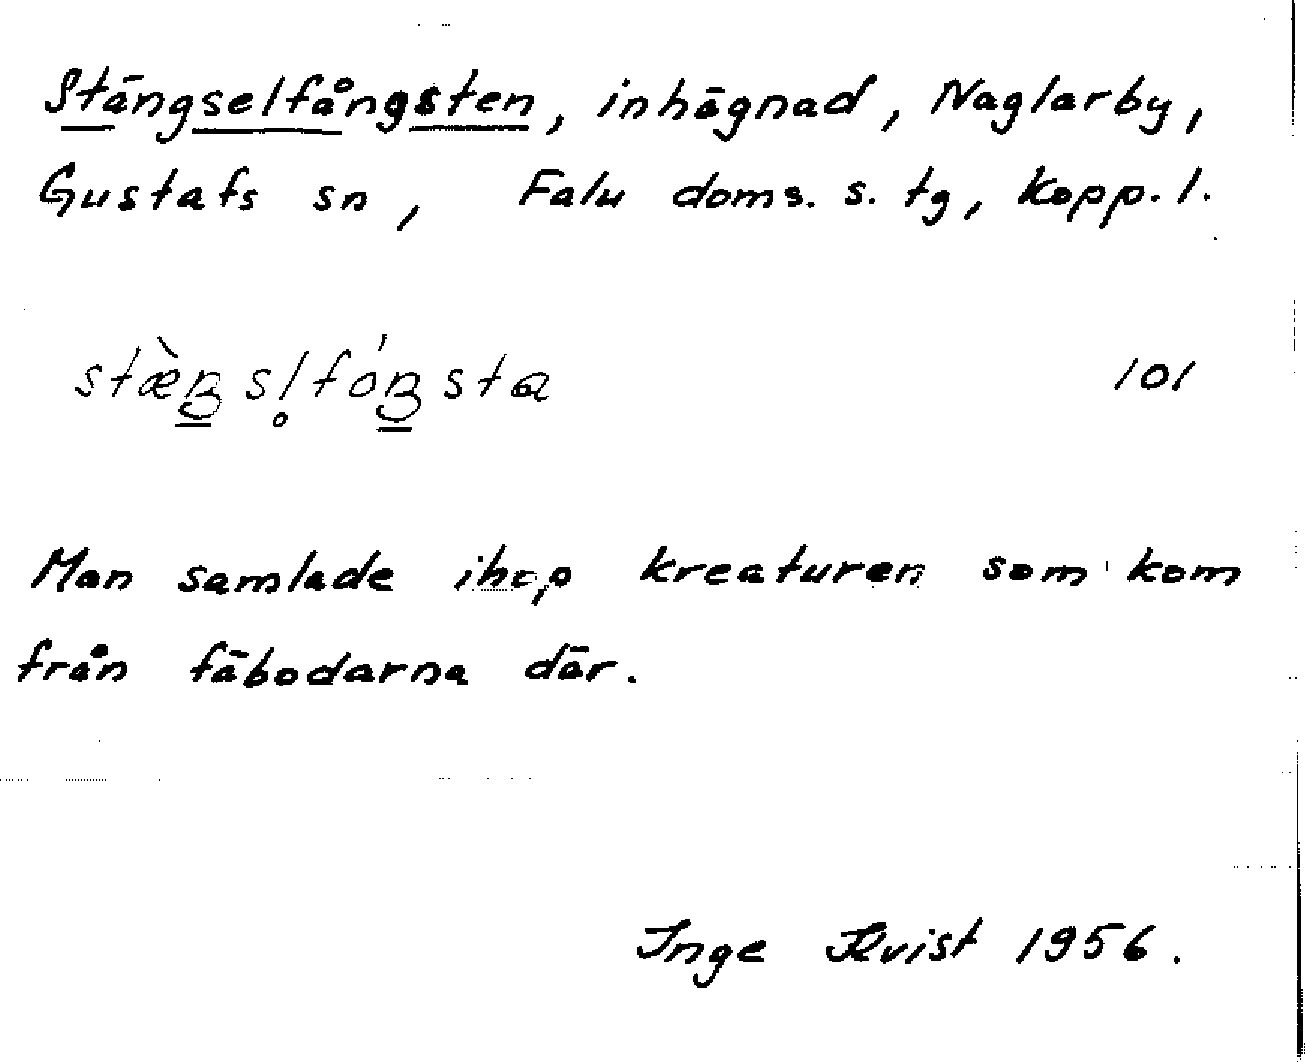 Stängselfångsten, inhägnad, Naglarby,
Gustafs sn, Falu doms. s. tg, Kopp. l.
stæ̀ŋsl̥fóŋsta 101
Man samlade ihop kreaturen som kom
från fäbodarna där.
Inge Kvist 1956.